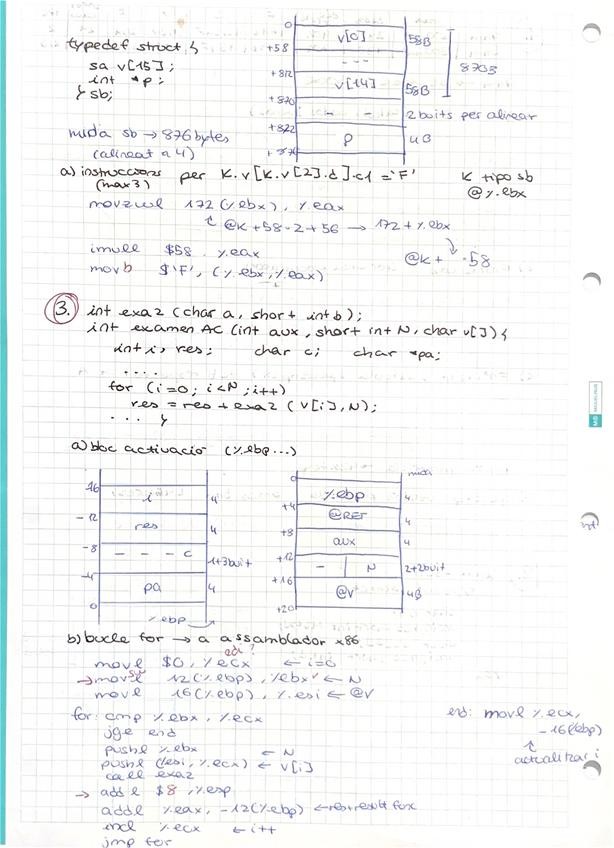 typedef struct {
sa v[15];
int *p;
} sb;
mida sb → 876 bytes
(alineat a 4)
0
v[0]
58B
+58
- - -
870B
+812
v[14]
58B
+870
- -
2 buits per alinear
+872
p
4B
+876
a) instruccions per K.v[K.v[2].d].c1 = 'F'
(max 3)
K tipo sb
@%ebx
movzwl 172(%ebx), %eax
@K + 58·2 + 56 → 172 + %ebx
imull $58, %eax
@K + ·58
movb $'F', (%ebx,%eax)
3. int exa2 (char a, short int b);
int examen AC (int aux, short int N, char v[]) {
int i, res; char c; char *pa;
....
for (i=0; i<N; i++)
res = res + exa2 (v[i], N);
... }
a) bloc activació (%ebp...)
-16
i
4
-12
res
4
-8
- - - c
1+3buit
-4
pa
4
0
%ebp
mida
0
%ebp
4
+4
@RET
4
+8
aux
4
+12
- N
2+2buit
+16
@v
4B
+20
b) bucle for → a assamblador x86
edi?
movl $0, %ecx ← i=0
→ movswl 12(%ebp), %ebx ← N
movl 16(%ebp), %esi ← @V
for: cmp %ebx, %ecx
jge end
pushl %ebx ← N
pushl (%esi, %ecx) ← v[i]
call exa2
→ addl $8, %esp
addl %eax, -12(%ebp) ← res+result func
incl %ecx ← i++
jmp for
end: movl %ecx,
-16(%ebp)
actualitzar i